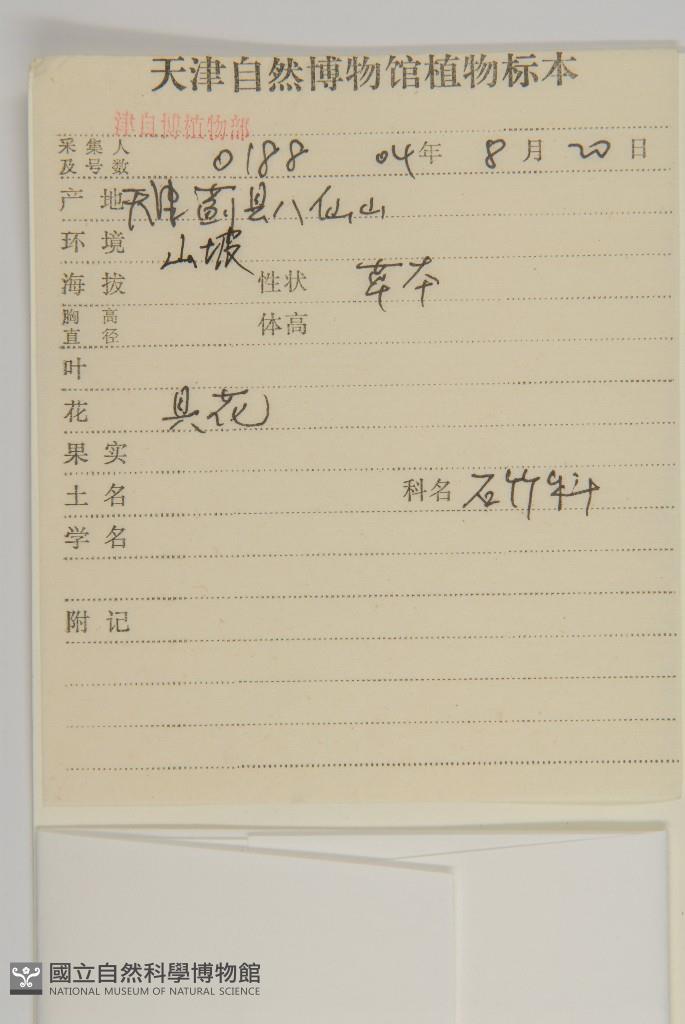 天津自然博物馆植物标本
津自博植物部
采集人及号数 0188 04年 8月 20日
产地 天津蓟县八仙山
环境 山坡
海拔 性状 草本
胸高直径 体高
叶
花 具花
果实
土名 科名 石竹科
学名
附记
國立自然科學博物館
NATIONAL MUSEUM OF NATURAL SCIENCE